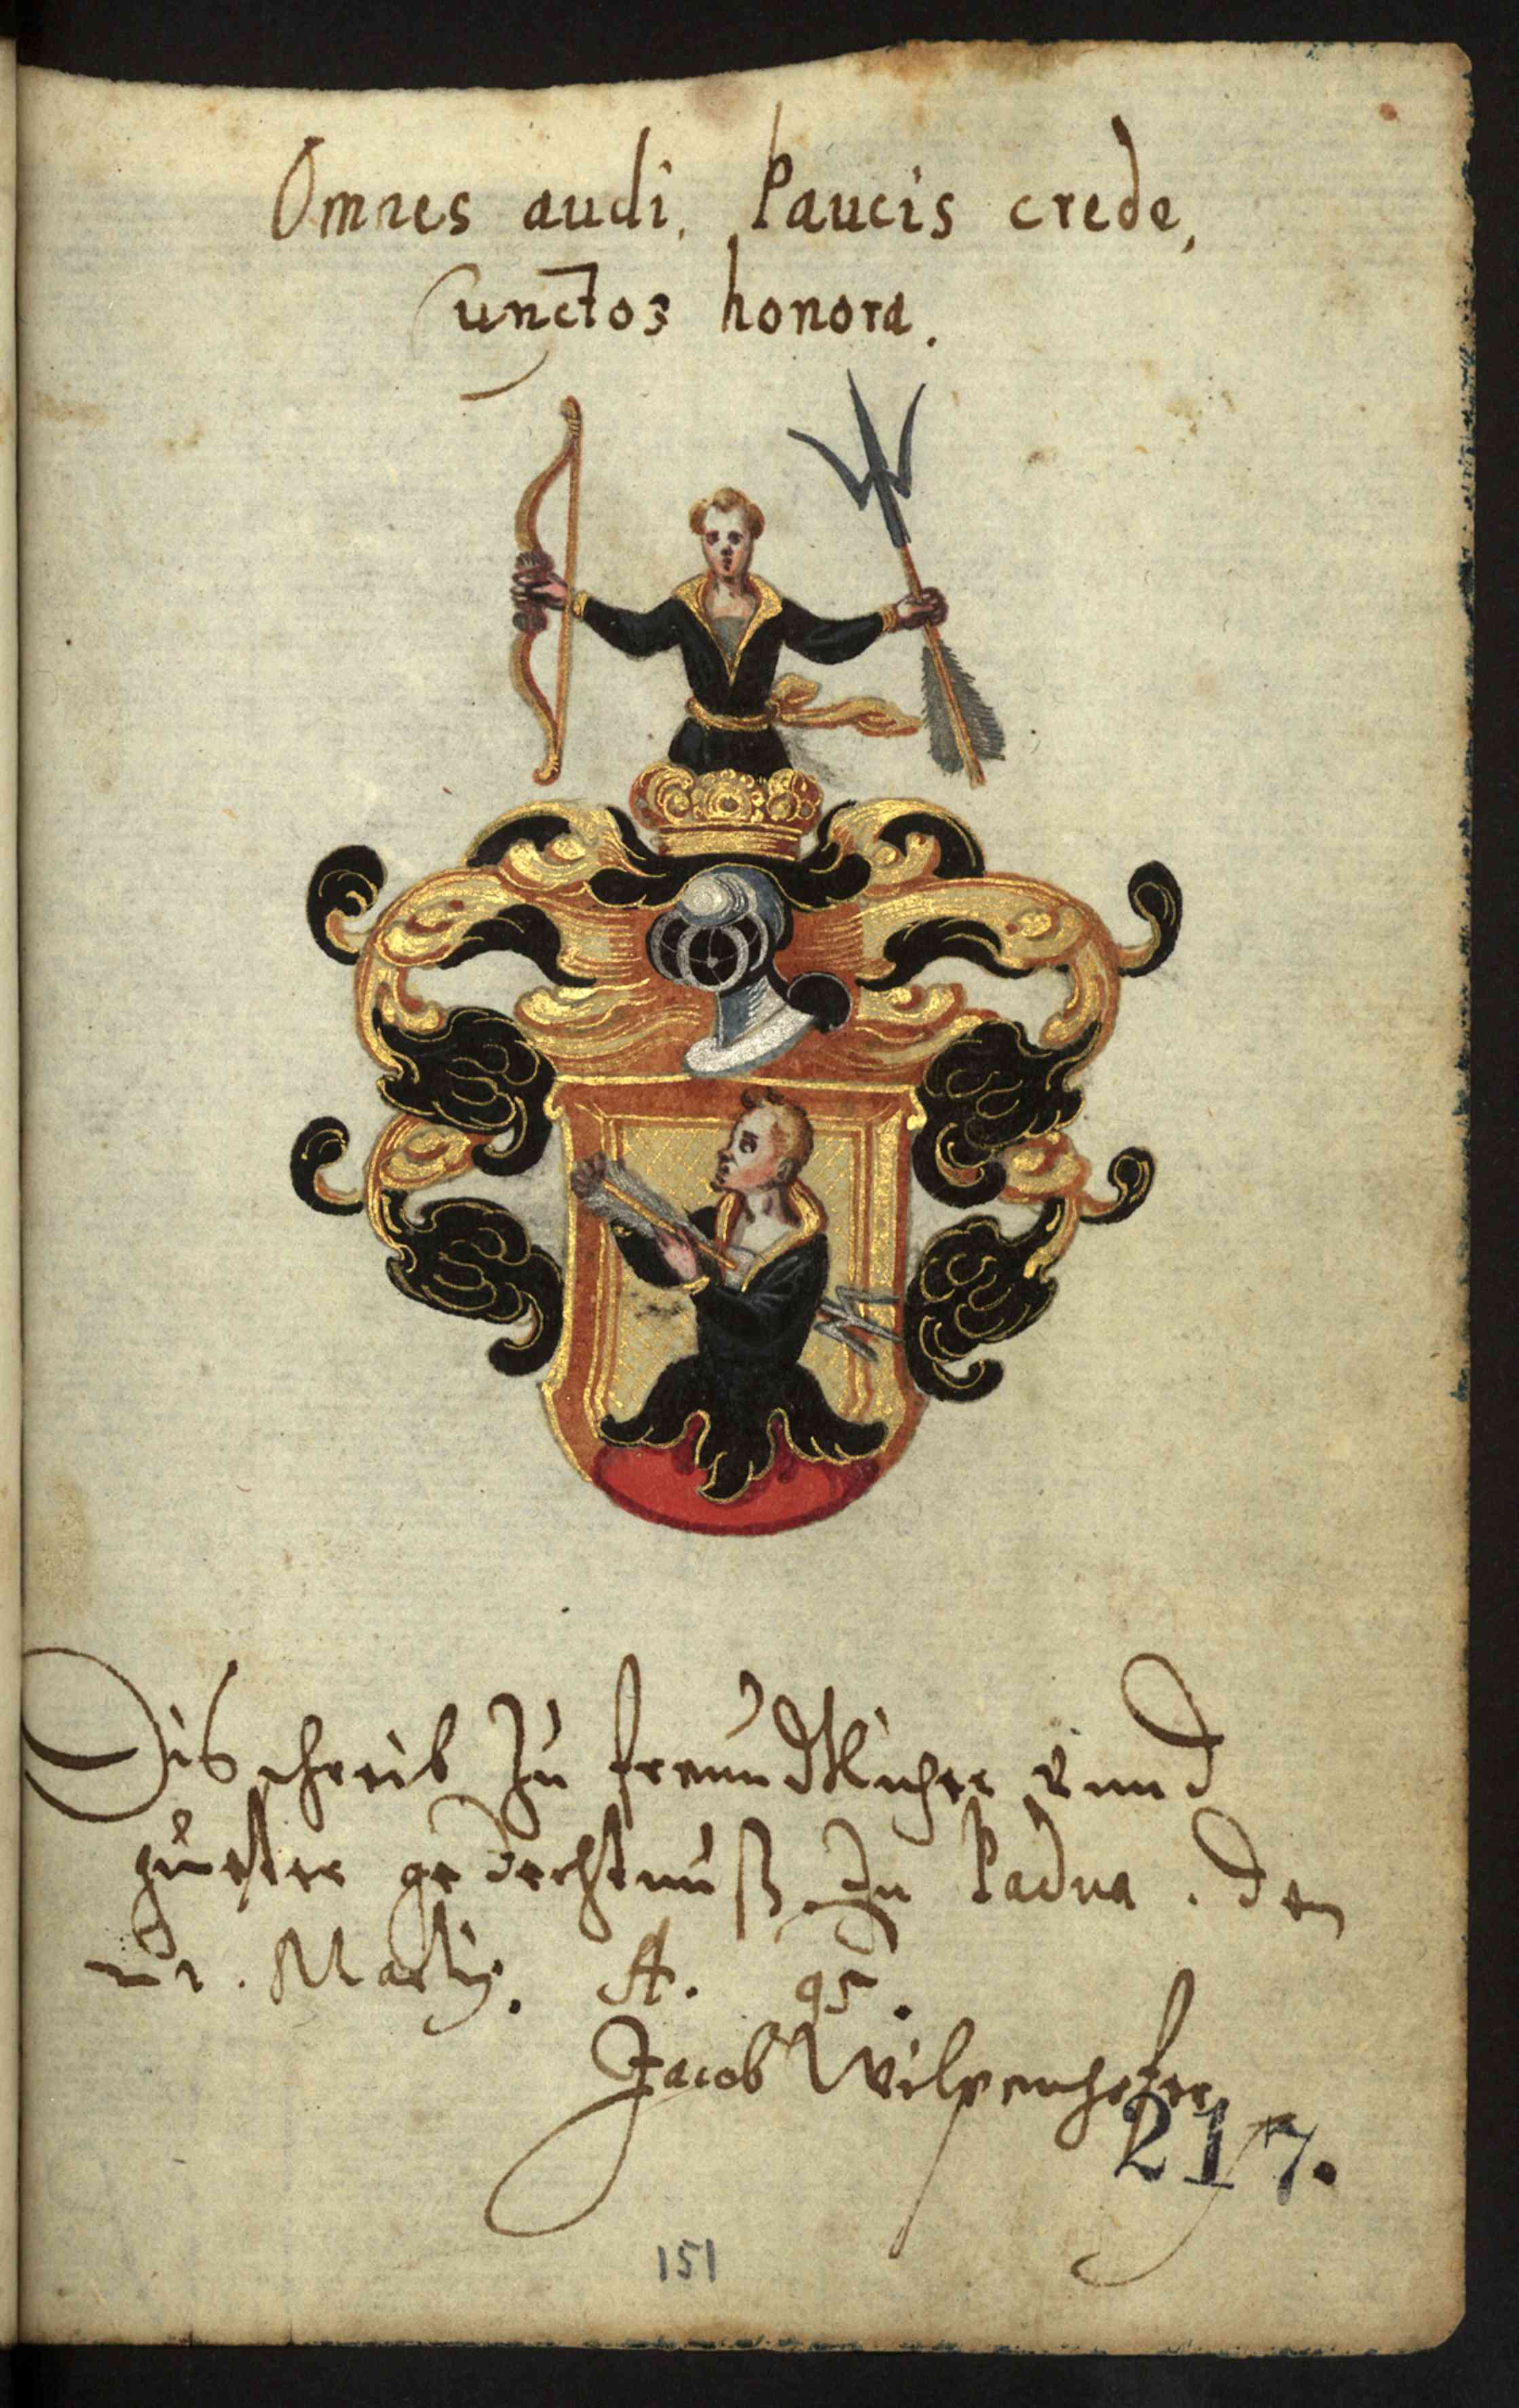 Omnes audi. Paucis crede,
Cunctos honora.
Dis schreib Zu freundtlicher vnnd
gůetter gedechtnuß In Padua. den
Martij. A. 95.
Jacob
217.
151